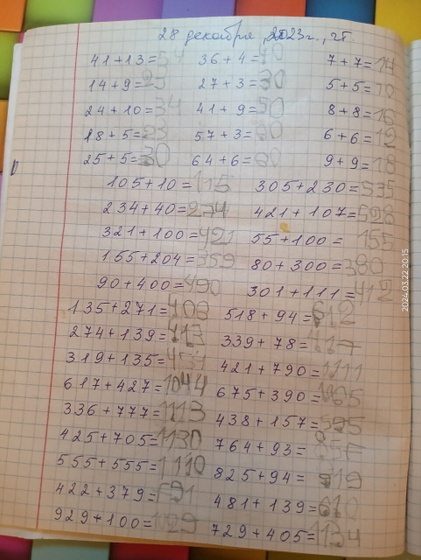 28 декабря, 2023г., чт
41+13=54 36+4=40 7+7=14
14+9=23 27+3=30 5+5=10
24+10=34 41+9=50 8+8=16
18+5=23 57+3=60 6+6=12
25+5=30 64+6= 9+9=18
105+10=115 305+230=535
234+40=274 421+107=528
321+100=421 55+100= 155
155+204=359 80+300=380
90+400=490 301+111=412
135+271=406 518+94=612
274+139=413 339+78=417
319+135= 421+790=1211
617+427=1044 675+390=
336+777=1113 438+157=595
425+705=1130 764+93=
555+555=1110 825+94= 919
422+379= 481+139=
929+100=1029 729+405=1134
2024.03.22 20:15